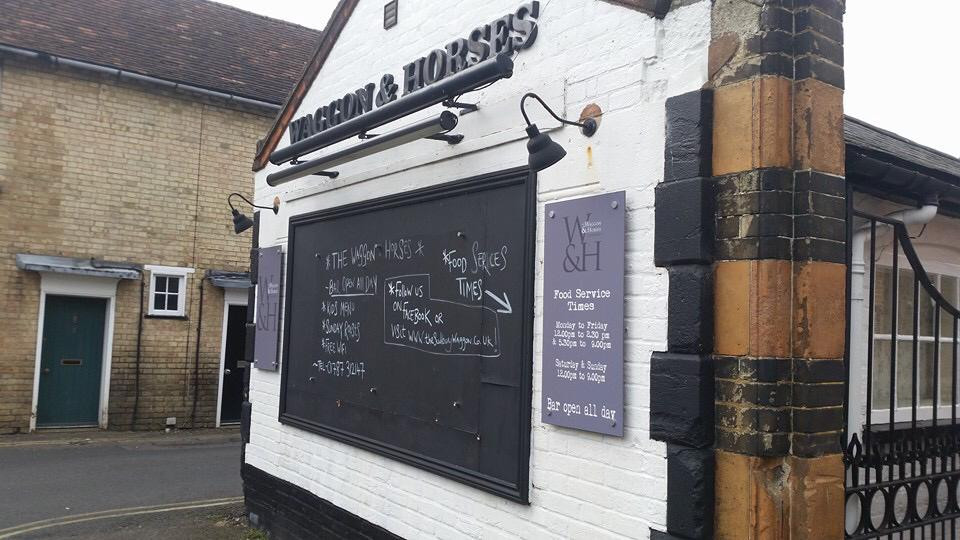 WAGGON & HORSES
*THE WAGGON & HORSES *
~BAR OPEN ALL DAY
*KIDS MENU
*SUNDAY ROASTS
*FREE WIFI
~TEL-01787 312147
*FOOD SERVICES
TIMES
*FOLLOW US
ON FACEBOOK OR
VISIT WWW.theSudburyWaggon.Co.UK
W&H
Waggon
& Horses
Food Service
Times
Monday to Friday
12.00pm to 2.30 pm
& 5.30pm to 9.00pm
Saturday & Sunday
12.00pm to 9.00pm
Bar open all day
W&H